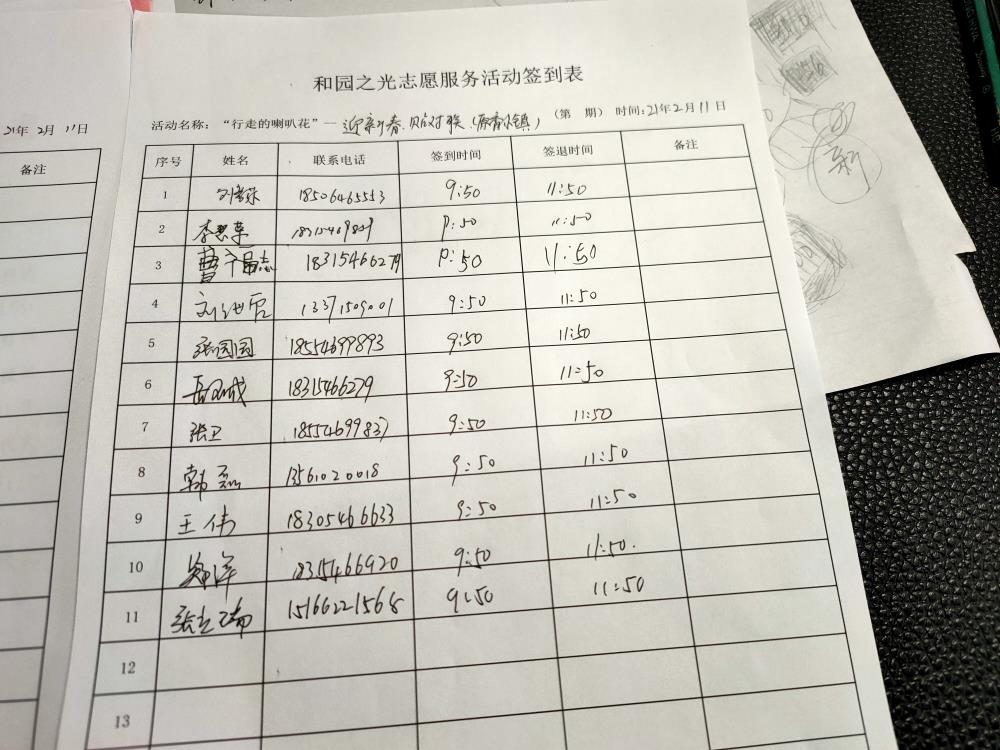 21年 2月 11日
备注
和园之光志愿服务活动签到表
活动名称：“行走的喇叭花”— 迎新春.贴对联.(原香小镇) （第 期） 时间:21年2月11日
序号 姓名 联系电话 签到时间 签退时间 备注
1 18506465553 9:50 11:50
2 9:50 11:50
3 9:50 11:50
4 13371509001 9:50 11:50
5 张园园 18554699893 9:50 11:50
6 18315466279 9:50 11:50
7 张卫 18554699837 9:50 11:50
8 韩磊 13561020018 9:50 11:50
9 王伟 18305466633 9:50 11:50
10 郑洋 18315466920 9:50 11:50.
11 张立瑞 15166221568 9:50 11:50
12
13
新